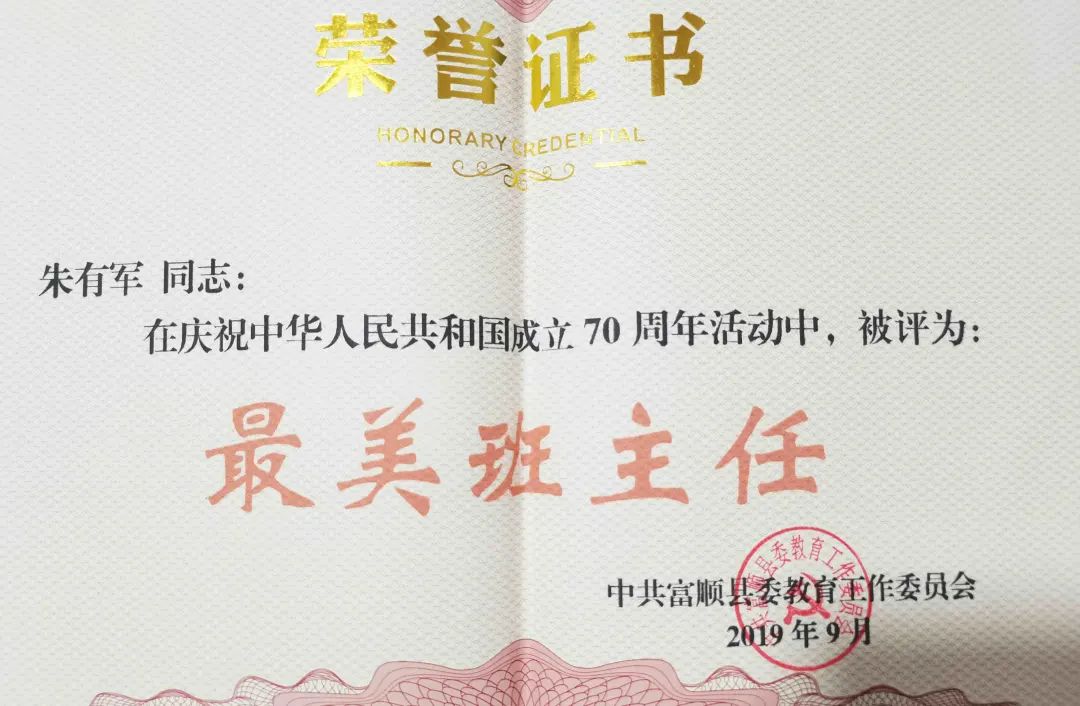 荣誉证书
HONORARY CREDENTIAL
朱有军 同志：
在庆祝中华人民共和国成立70周年活动中，被评为：
最美班主任
中共富顺县委教育工作委员会
2019年9月
中共富顺县委教育工作委员会